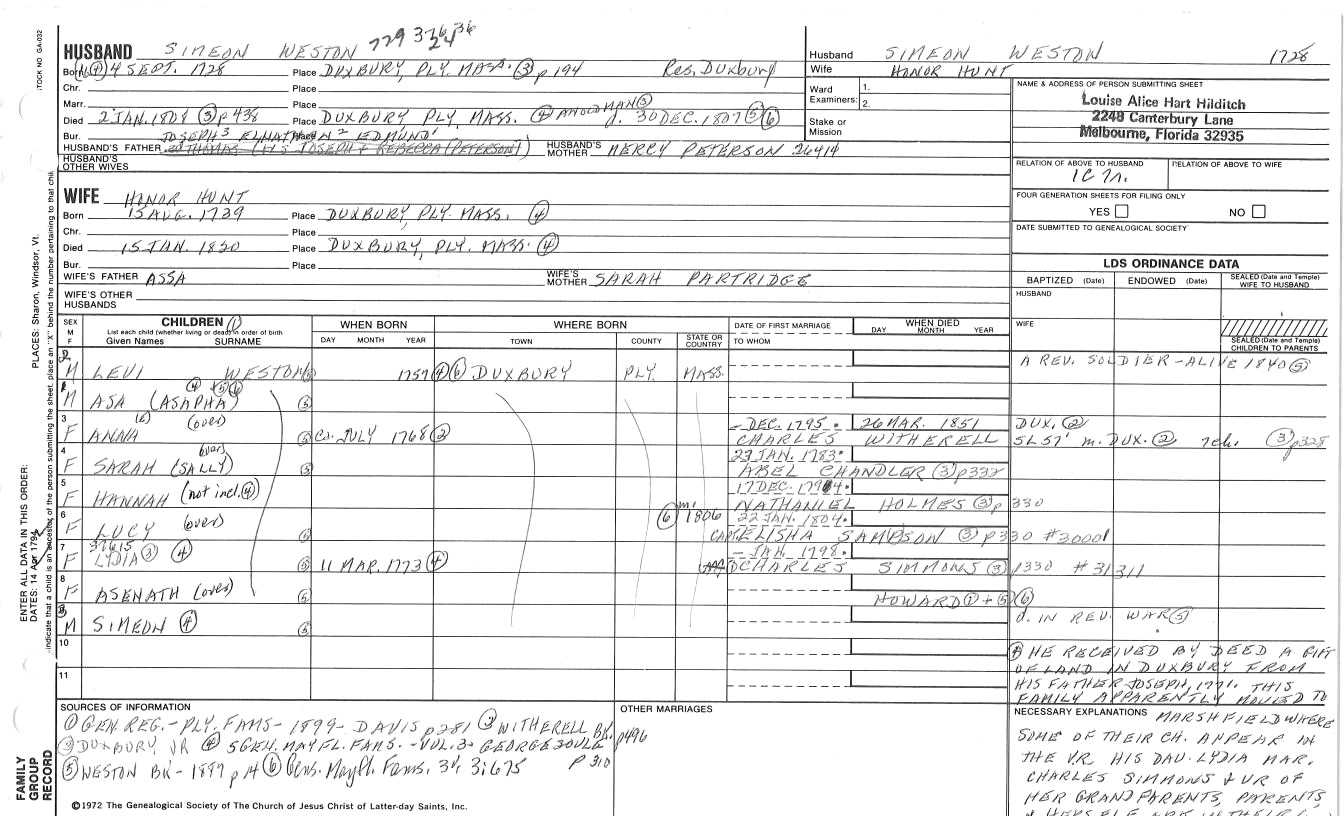 STOCK NO. GA-032
HUSBAND SIMEON WESTON 729 376 36 2436
Husband SIMEON WESTON 1728
Wife HONOR HUNT
Born 4 SEPT. 1728 Place DUXBURY, PLY. MASS. ③ p 194 Res. DUXBURY
Chr. Place
Marr. Place
Died 2 JAN. 1808 ③ p 438 Place DUXBURY PLY, MASS. ④ AN OLD MAN ③ d. 30 DEC. 1807 ⑤ ⑥
Bur. Place
JOSEPH³ ELNATHAN² EDMUND¹
HUSBAND'S FATHER THOMAS (JOSEPH & REBECCA (PETERSON)) HUSBAND'S MOTHER MERCY PETERSON 26414
HUSBAND'S OTHER WIVES
Ward
Examiners: 1.
2.
Stake or
Mission
NAME & ADDRESS OF PERSON SUBMITTING SHEET
Louise Alice Hart Hilditch
2248 Canterbury Lane
Melbourne, Florida 32935
RELATION OF ABOVE TO HUSBAND RELATION OF ABOVE TO WIFE
1C 7r.
FOUR GENERATION SHEETS FOR FILING ONLY
YES NO
DATE SUBMITTED TO GENEALOGICAL SOCIETY
WIFE HONOR HUNT
Born 15 AUG. 1739 Place DUXBURY, PLY. MASS. ④
Chr. Place
Died 15 JAN. 1820 Place DUXBURY, PLY. MASS. ④
Bur. Place
WIFE'S FATHER ASSA WIFE'S MOTHER SARAH PARTRIDGE
WIFE'S OTHER HUSBANDS
LDS ORDINANCE DATA
BAPTIZED (Date) ENDOWED (Date) SEALED (Date and Temple) WIFE TO HUSBAND
HUSBAND
WIFE
SEALED (Date and Temple) CHILDREN TO PARENTS
SEX M F
CHILDREN ①
List each child (whether living or dead) in order of birth
Given Names SURNAME
WHEN BORN
DAY MONTH YEAR
WHERE BORN
TOWN COUNTY STATE OR COUNTRY
DATE OF FIRST MARRIAGE
TO WHOM
WHEN DIED
DAY MONTH YEAR
2 M LEVI WESTON ⑤ 1757 ④ ⑥ DUXBURY PLY. MASS. A REV. SOLDIER - ALIVE 1840 ⑤
④ + ⑤ ⑥
1 M ASA (ASAPHA) ⑤
3 F ANNA (over) ⑤ Ca. JULY 1768 ② - DEC. 1795 CHARLES WITHERELL 26 MAR. 1851 DUX. ② SL 57' m. DUX. ② 7ch. ③ p328
4 F SARAH (SALLY) (over) ⑤ 23 JAN. 1783 ABEL CHANDLER ③ p332
5 F HANNAH (not incl. ④) 17 DEC. 1794 NATHANIEL HOLMES ③ p 330
6 F LUCY (over) ⑤ ⑥ m. 1806 22 JAN. 1804 CAPT. ELISHA SAMPSON ③ p 330 #30001
7 F 37615 LYDIA ③ ④ ⑤ 11 MAR. 1773 ④ - JAN. 1798 CHARLES SIMMONS ③ p330 #31311
8 F ASENATH (over) ⑤ HOWARD ① + ⑤ ⑥
9 M SIMEON ④ ⑤ d. IN REV. WAR ⑤
10
11
④ HE RECEIVED BY DEED A GIFT
OF LAND IN DUXBURY FROM
HIS FATHER JOSEPH, 1771. THIS
FAMILY APPARENTLY MOVED TO
SOURCES OF INFORMATION
① GEN. REG. - PLY. FAMS - 1899 - DAVIS p281 ② WITHERELL BK. p496
③ DUXBURY VR ④ 5 GEN. MAYFL. FAMS. - VOL. 3 - GEORGE SOULE p 310
⑤ WESTON BK - 1887 p 14 ⑥ Gens. Mayfl. Fams, 3d, 3:675
OTHER MARRIAGES
NECESSARY EXPLANATIONS MARSHFIELD WHERE
SOME OF THEIR CH. APPEAR IN
THE V.R. HIS DAU. LYDIA MAR.
CHARLES SIMMONS & VR OF
HER GRANDPARENTS, PARENTS,
& HERSELF ARE IN THEIR
©1972 The Genealogical Society of The Church of Jesus Christ of Latter-day Saints, Inc.
FAMILY GROUP RECORD
ENTER ALL DATA IN THIS ORDER:
DATES: 14 Apr 1794
PLACES: Sharon, Windsor, Vt.
indicate that a child is an ancestor of the person submitting the sheet, place an "X" behind the number pertaining to that chil